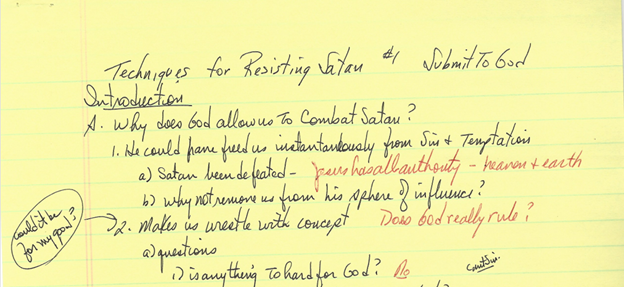 Techniques for Resisting Satan #1 Submit To God
Introduction
A. Why does God allow us To Combat Satan?
1. He could have freed us instantaneously from Sin & Temptation
a) Satan been defeated - Jesus has all authority - heaven & earth
b) why not remove us from his sphere of influence?
could it be for my good?
2. Makes us wrestle with concept Does God really rule?
a) questions
i) is anything To hard for God? No